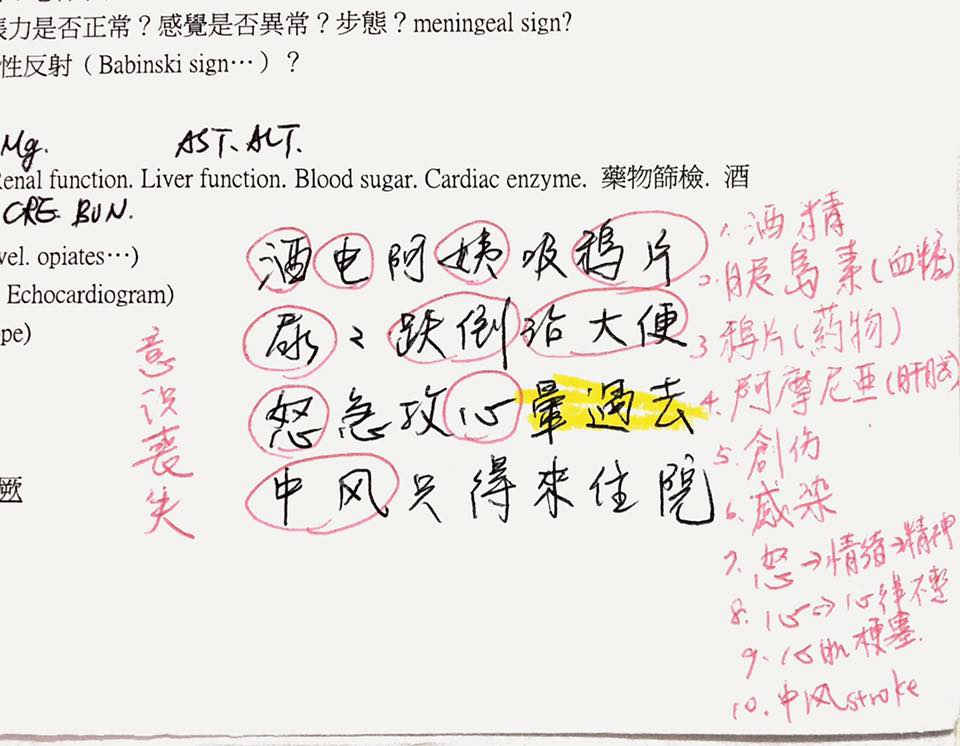 張力是否正常？感覺是否異常？步態？meningeal sign?
性反射（Babinski sign…）？
Mg. AST. ALT.
Renal function. Liver function. Blood sugar. Cardiac enzyme. 藥物篩檢. 酒
CRE. BUN.
vel. opiates…)
Echocardiogram)
pe)
厥
酒电阿姨吸鴉片
尿尿跌倒沾大便
怒急攻心暈過去
中风只得來住院
意识丧失
1. 酒精
2. 胰島素(血糖)
3 鴉片(药物)
4. 阿摩尼亜(肝脏)
5. 創伤
6. 感染
7. 怒→情緒→精神
8. 心→心律不整
9. 心肌梗塞.
10. 中风stroke